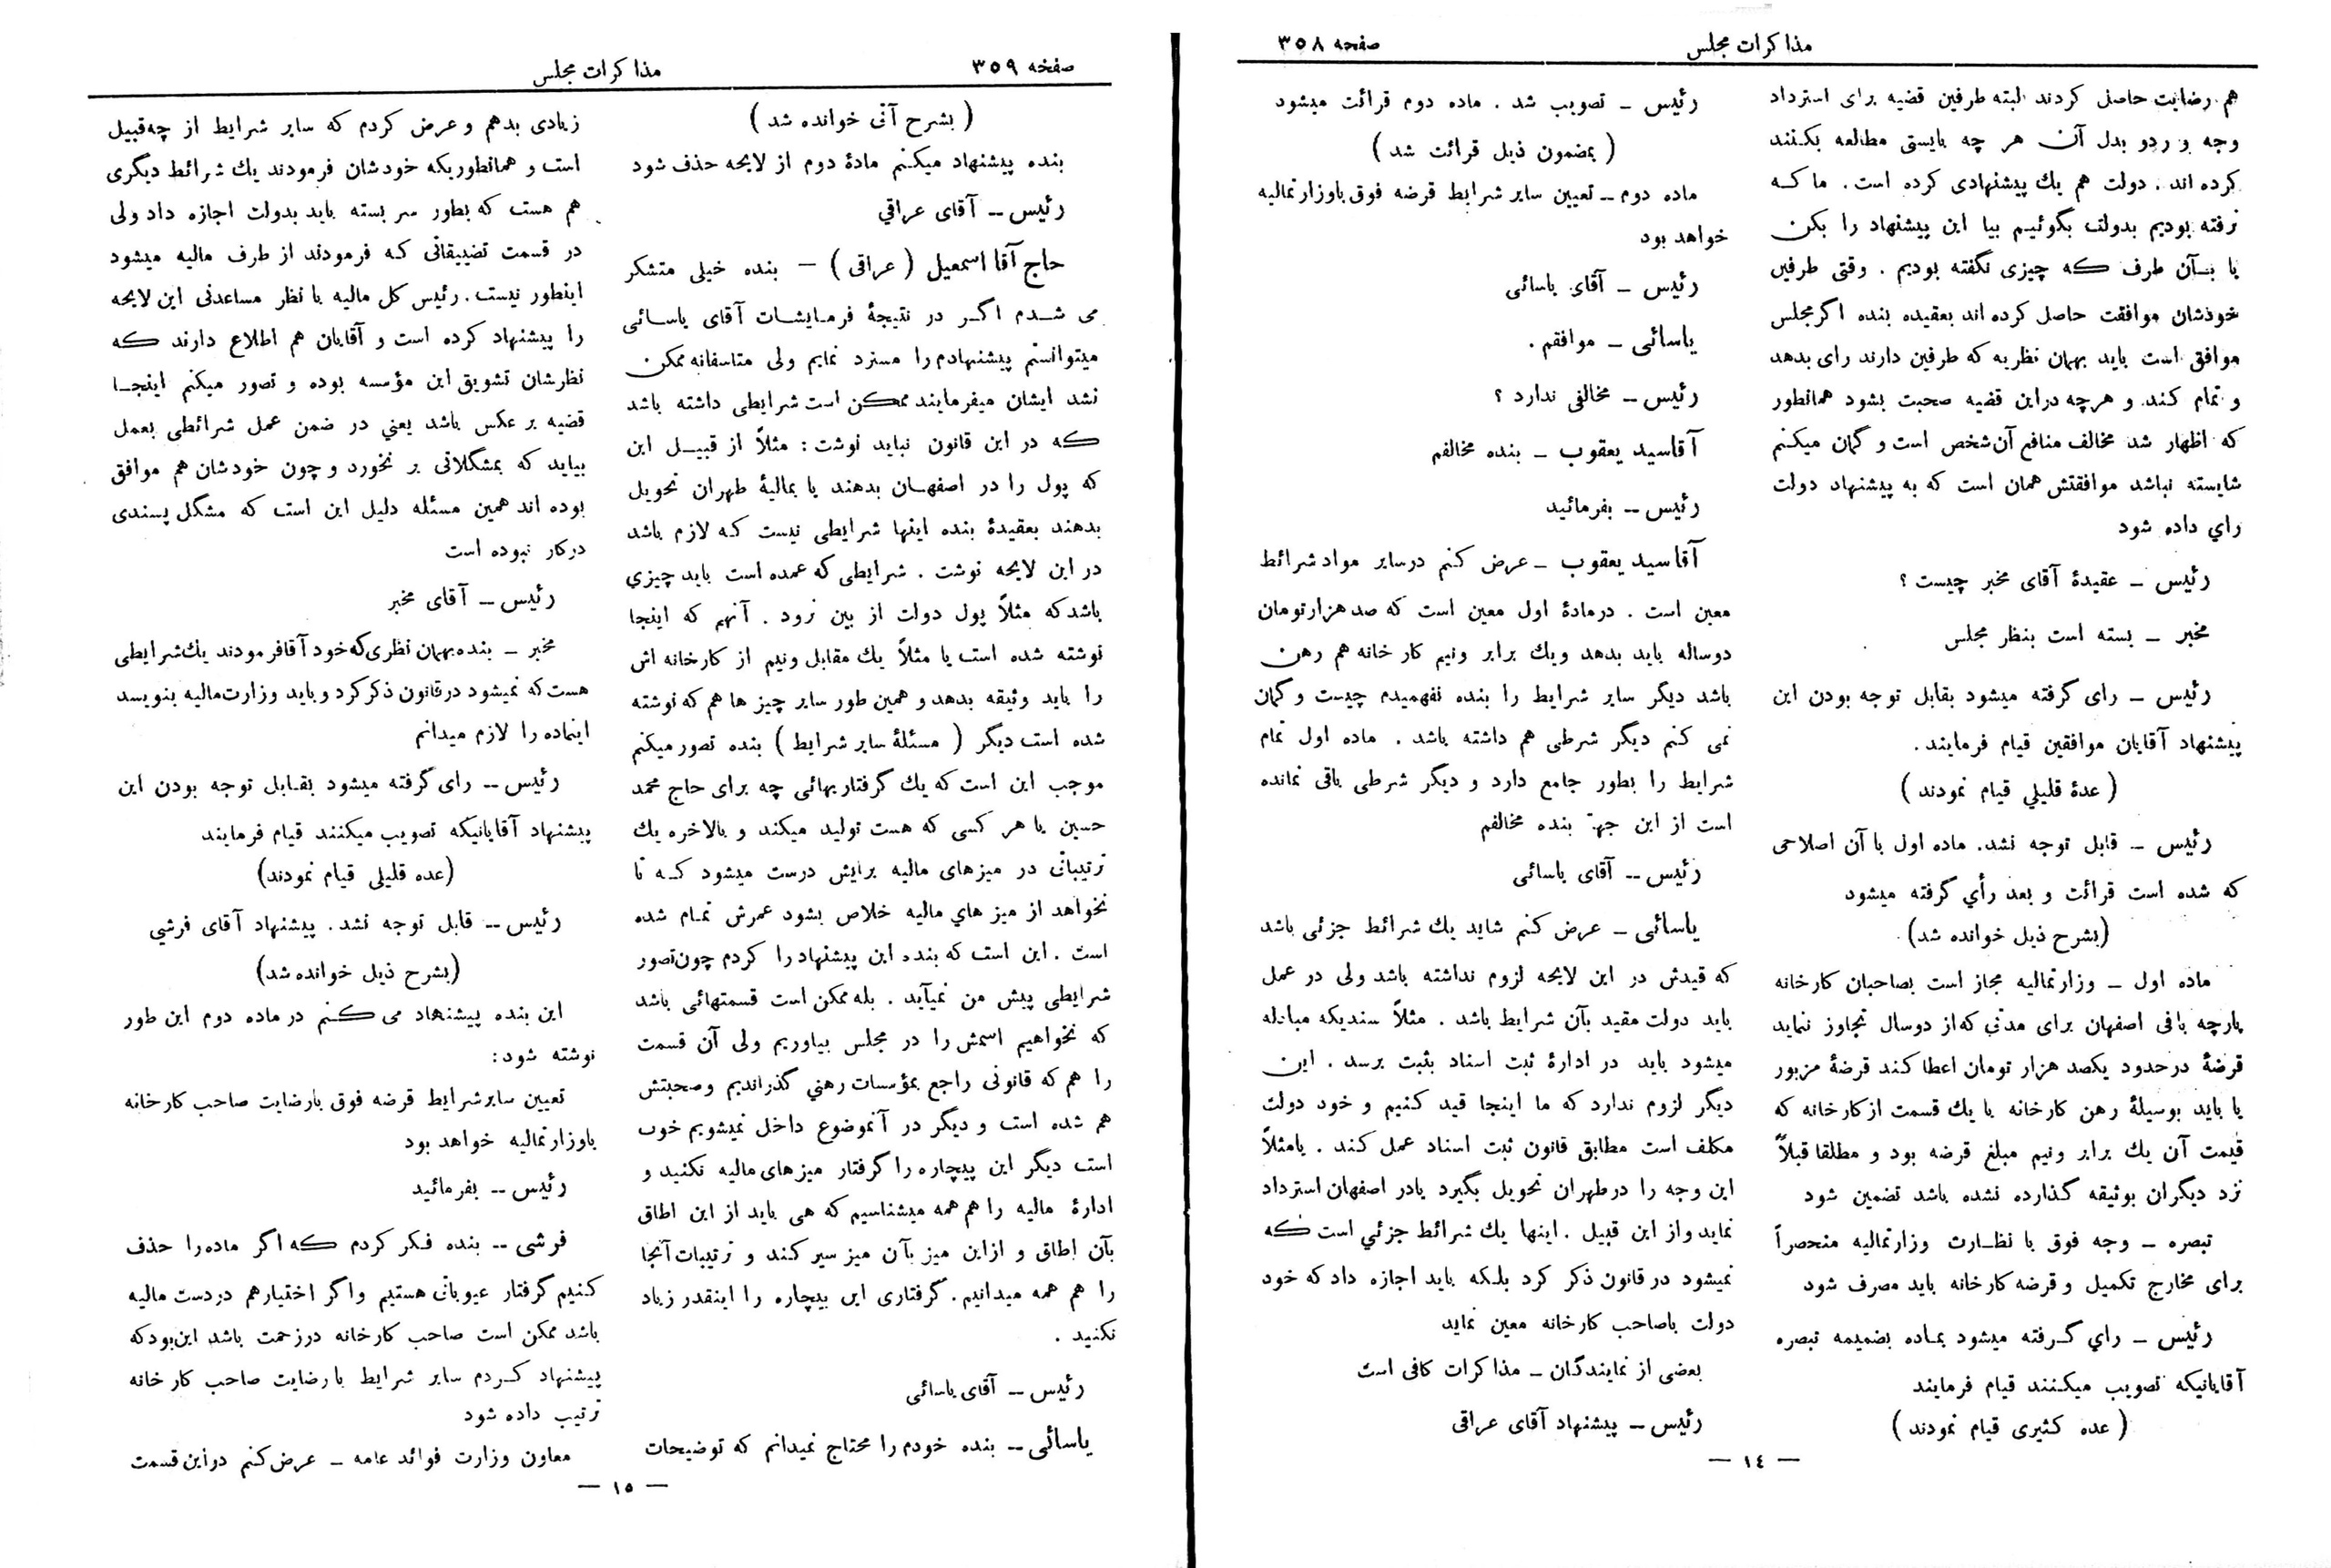 مذاکرات مجلس
صفحه ۳۵۸
هم رضایت حاصل کردند البته طرفین قضیه برای استرداد
وجه و ردو بدل آن هر چه بایستی مطالعه بکنند
کرده اند. دولت هم یك پیشنهادی کرده است. ما که
نرفته بودیم بدولت بگوئیم بیا این پیشنهاد را بکن
یا بآن طرف که چیزی نگفته بودیم. وقتی طرفین
خودشان موافقت حاصل کرده اند بعقیده بنده اگر مجلس
موافق است باید بهمان نظریه که طرفین دارند رای بدهد
و تمام کند. و هرچه دراین قضیه صحبت بشود همانطور
که اظهار شد مخالف منافع آن شخص است و گمان میکنم
شایسته نباشد موافقتش همان است که به پیشنهاد دولت
راي داده شود
رئیس ــ عقیدۀ آقای مخبر چیست ؟
مخبر ــ بسته است بنظر مجلس
رئیس ــ رای گرفته میشود بقابل توجه بودن این
پیشنهاد آقایان موافقین قیام فرمایند.
( عدۀ قلیلي قیام نمودند )
رئیس ــ قابل توجه نشد. ماده اول با آن اصلاحی
که شده است قرائت و بعد رأي گرفته میشود
(بشرح ذیل خوانده شد)
ماده اول ــ وزارتمالیه مجاز است بصاحبان کارخانه
پارچه بافی اصفهان برای مدتی که از دوسال تجاوز ننماید
قرضۀ درحدود یکصد هزار تومان اعطا کند قرضۀ مزبور
یا باید بوسیلۀ رهن کارخانه یا یك قسمت از کارخانه که
قیمت آن یك برابر ونیم مبلغ قرضه بود و مطلقا قبلاً
نزد دیگران بوثیقه گذارده نشده باشد تضمین شود
تبصره ــ وجه فوق با نظارت وزارتمالیه منحصراً
برای مخارج تکمیل و قرضه کارخانه باید مصرف شود
رئیس ــ راي گرفته میشود بماده بضمیمه تبصره
آقایانیکه تصویب میکنند قیام فرمایند
( عده کثیری قیام نمودند )
رئیس ــ تصویب شد . ماده دوم قرائت میشود
( بمضمون ذیل قرائت شد )
ماده دوم ــ تعیین سایر شرایط قرضه فوق باوزارتمالیه
خواهد بود
رئیس ــ آقای یاسائی
یاسائی ــ موافقم .
رئیس ــ مخالفی ندارد ؟
آقاسید یعقوب ــ بنده مخالفم
رئیس ــ بفرمائید
آقاسید یعقوب ــ عرض کنم درسایر مواد شرائط
معین است . درمادۀ اول معین است که صد هزار تومان
دوساله باید بدهد ویك برابر ونیم کارخانه هم رهن
باشد دیگر سایر شرایط را بنده نفهمیدم چیست و گمان
نمی کنم دیگر شرطی هم داشته باشد . ماده اول تمام
شرایط را بطور جامع دارد و دیگر شرطی باقی نمانده
است از این جهة بنده مخالفم
رئیس ــ آقای یاسائی
یاسائی ــ عرض کنم شاید یك شرائط جزئی باشد
که قیدش در این لایحه لزوم نداشته باشد ولی در عمل
باید دولت مقید بآن شرایط باشد . مثلاً سندیکه مبادله
میشود باید در ادارۀ ثبت اسناد بثبت برسد . این
دیگر لزوم ندارد که ما اینجا قید کنیم و خود دولت
مکلف است مطابق قانون ثبت اسناد عمل کند . یامثلاً
این وجه را درطهران تحویل بگیرد یادر اصفهان استرداد
نماید واز این قبیل . اینها یك شرائط جزئي است که
نمیشود در قانون ذکر کرد بلکه باید اجازه داد که خود
دولت باصاحب کارخانه معین نماید
بعضی از نمایندگان ــ مذاکرات کافی است
رئیس ــ پیشنهاد آقای عراقی
— ١٤ —
صفحه ۳۵۹
مذاکرات مجلس
( بشرح آتی خوانده شد )
بنده پیشنهاد میکنم مادۀ دوم از لایحه حذف شود
رئیس ــ آقای عراقي
حاج آقا اسمعیل ( عراقی ) — بنده خیلی متشکر
می شدم اگر در نتیجۀ فرمایشات آقای یاسائی
میتوانستم پیشنهادم را مسترد نمایم ولی متاسفانه ممکن
نشد ایشان میفرمایند ممکن است شرایطی داشته باشد
که در این قانون نباید نوشت : مثلاً از قبیل این
که پول را در اصفهان بدهند یا بمالیۀ طهران تحویل
بدهند بعقیدۀ بنده اینها شرایطی نیست که لازم باشد
در این لایحه نوشت . شرایطی که عمده است باید چیزي
باشدکه مثلاً پول دولت از بین نرود . آنهم که اینجا
نوشته شده است یا مثلاً یك مقابل ونیم از کارخانه اش
را باید وثیقه بدهد و همین طور سایر چیز ها هم که نوشته
شده است دیگر ( مسئلۀ سایر شرایط ) بنده تصور میکنم
موجب این است که یك گرفتاریهائی چه برای حاج محمد
حسین یا هر کسی که هست تولید میکند و بالاخره یك
ترتیباتی در میزهای مالیه برایش درست میشود که تا
نخواهد از میز هاي مالیه خلاص بشود عمرش تمام شده
است . این است که بنده این پیشنهاد را کردم چون تصور
شرایطی پیش من نمیآید . بله ممکن است قسمتهائی باشد
که نخواهیم اسمش را در مجلس بیاوریم ولی آن قسمت
را هم که قانونی راجع بمؤسسات رهني گذراندیم وصحبتش
هم شده است و دیگر در آنموضوع داخل نمیشویم خوب
است دیگر این بیچاره را گرفتار میزهای مالیه نکنید و
ادارۀ مالیه را هم همه میشناسیم که هی باید از این اطاق
بآن اطاق و ازاین میز بآن میز سیر کند و ترتیبات آنجا
را هم همه میدانیم . گرفتاری این بیچاره را اینقدر زیاد
نکنید .
رئیس ــ آقای یاسائی
یاسائی ــ بنده خودم را محتاج نمیدانم که توضیحات
زیادی بدهم و عرض کردم که سایر شرایط از چه قبیل
است و همانطوریکه خودشان فرمودند یك شرائط دیگری
هم هست که بطور سر بسته باید بدولت اجازه داد ولی
در قسمت تضییقاتی که فرمودند از طرف مالیه میشود
اینطور نیست . رئیس کل مالیه با نظر مساعدتی این لایحه
را پیشنهاد کرده است و آقایان هم اطلاع دارند که
نظرشان تشویق این مؤسسه بوده و تصور میکنم اینجا
قضیه بر عکس باشد یعني در ضمن عمل شرائطی بعمل
بیاید که بمشگلاتی بر نخورد و چون خودشان هم موافق
بوده اند همین مسئله دلیل این است که مشگل پسندی
درکار نبوده است
رئیس ــ آقای مخبر
مخبر ــ بنده بهمان نظری که خود آقا فرمودند یك شرایطی
هست که نمیشود درقانون ذکر کرد و باید وزارت مالیه بنویسد
اینماده را لازم میدانم
رئیس ــ رای گرفته میشود بقابل توجه بودن این
پیشنهاد آقایانیکه تصویب میکنند قیام فرمایند
(عده قلیلی قیام نمودند)
رئیس ــ قابل توجه نشد . پیشنهاد آقای فرشي
(بشرح ذیل خوانده شد)
این بنده پیشنهاد می کنم در ماده دوم این طور
نوشته شود :
تعیین سایر شرایط قرضه فوق بارضایت صاحب کارخانه
باوزارتمالیه خواهد بود
رئیس ــ بفرمائید
فرشی ــ بنده فکر کردم که اگر ماده را حذف
کنیم گرفتار عیوباتی هستیم واگر اختیارهم دردست مالیه
باشد ممکن است صاحب کارخانه درزحمت باشد این بودکه
پیشنهاد کردم سایر شرایط با رضایت صاحب کارخانه
ترتیب داده شود
معاون وزارت فوائد عامه ــ عرض کنم دراین قسمت
— ١٥ —